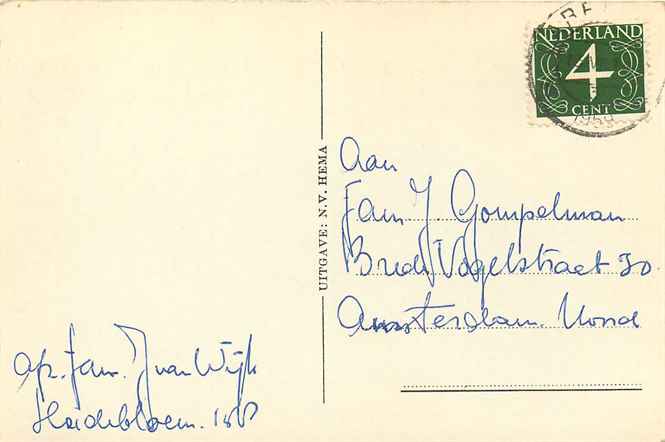 NEDERLAND
4
CENT
1959
UITGAVE: N.V. HEMA
Aan
Fam J. Gompelman
Brede Vogelstraat 30
Amsterdam. Noord
afz. Fam. J van Wijk
Heidebloem.